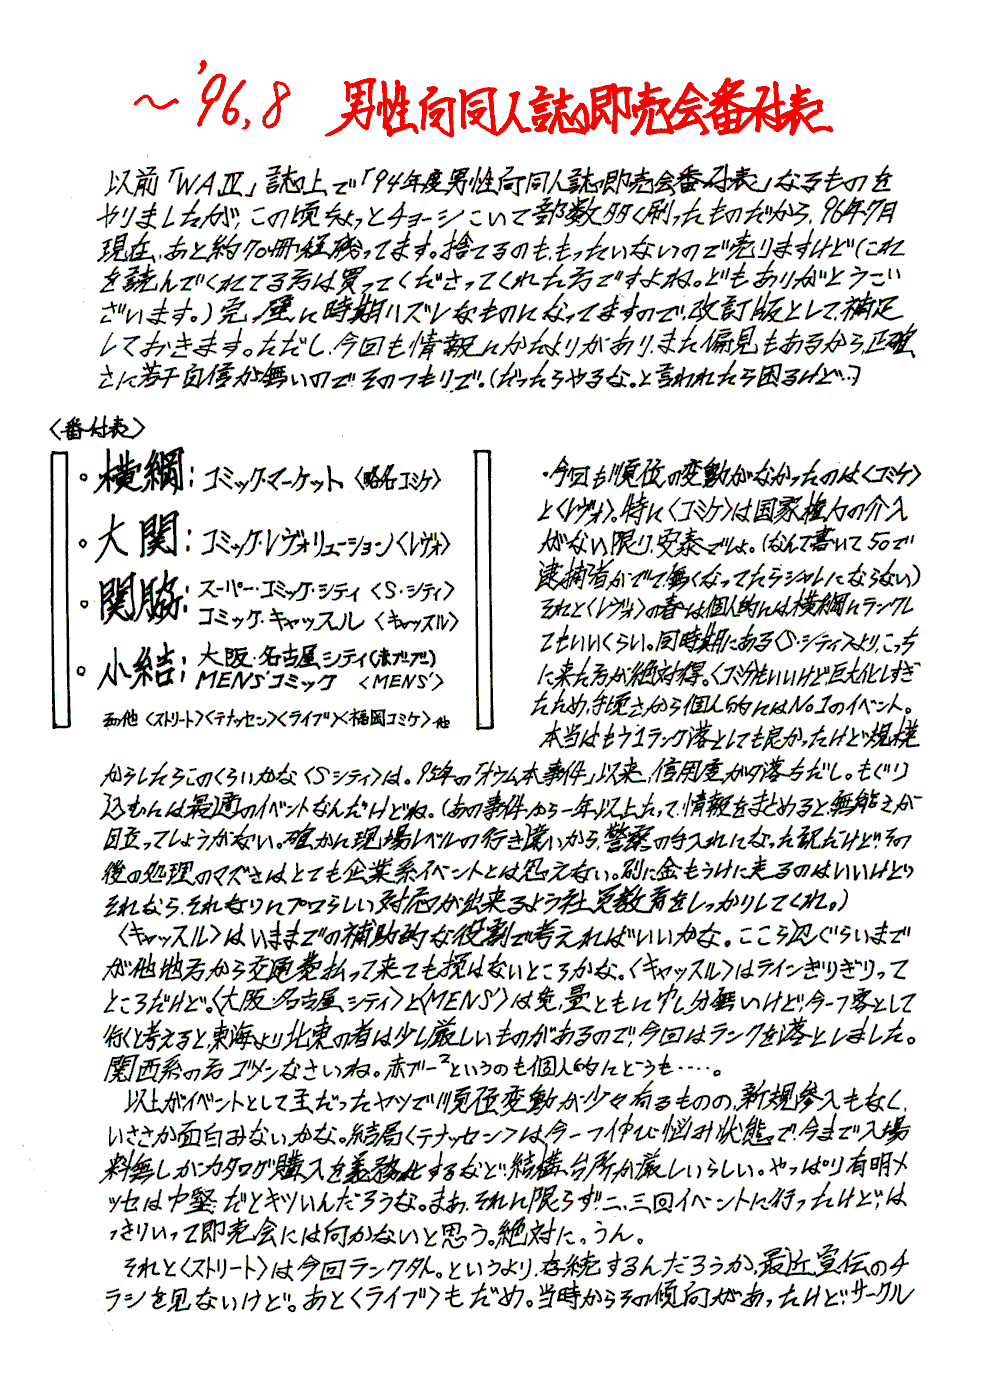 ～'96,8 男性向同人誌即売会番付表
以前「WAⅣ」誌上で「'94年度男性向同人誌即売会番付表」なるものを
やりましたが、この頃ちょっとチョーシこいて部数多く刷ったものだから、96年7月
現在、あと約70冊程残ってます。捨てるのももったいないので売りますけど（これ
を読んでくれてる方は買ってくださってくれた方ですよね。どもありがとうござ
ざいます。）完璧に時期ハズレなものになってますので、改訂版として補足
しておきます。ただし、今回も情報にかたよりがあり、また偏見もあるから、正確
さに若干自信が無いのでそのつもりで。（だったらやるな。と言われたら困るけど…）
〈番付表〉
・横綱：コミック・マーケット〈略名コミケ〉
・大関：コミック・レヴォリューション〈レヴォ〉
・関脇：スーパー・コミック・シティ〈S・シティ〉
コミック・キャッスル〈キャッスル〉
・小結：大阪・名古屋シティ（赤ブーブー）
MENS'コミック〈MENS'〉
その他〈ストリート〉〈テナッセン〉〈ライブ〉〈福岡コミケ〉他
・今回も順位の変動がなかったのは〈コミケ〉
と〈レヴォ〉。特に〈コミケ〉は国家権力の介入
がない限り、安泰でしょ。（なんて書いて50で
逮捕者がでて無くなってたらシャレにならない）
それと〈レヴォ〉の春は個人的には横綱にランクし
てもいいくらい。同時期にある〈S・シティ〉より、こっち
に来た方が絶対得。〈コミケ〉もいいけど巨大化しすぎ
たため、手頃さから個人的にはNo.1のイベント。
本当はもう1ランク落としても良かったけど規模
からしたらこのくらいかな〈Sシティ〉は。95年の「オウム本事件」以来、信用度がた落ちだし。もぐり
込むには最適のイベントなんだけどね。（あの事件から一年以上たって、情報をまとめると、無能さが
目立ってしょうがない。確かに現場レベルの行き違いから、警察の手入れになった訳だけど、その
後の処理のマズさはとても企業系イベントとは思えない。別に金もうけに走るのはいいけど
それなら、それなりにプロらしい対応が出来るよう社員教育をしっかりしてくれ。）
〈キャッスル〉はいままでの補助的な役割で考えればいいかな。ここら辺ぐらいまで
が他地方から交通費払って来ても損はないところかな。〈キャッスル〉はラインぎりぎりって
ところだけど。〈大阪・名古屋シティ〉と〈MENS'〉は質、量ともに申し分無いけど、今一つ客として
行くと考えると、東海より北東の者は少し厳しいものがあるので、今回はランクを落としました。
関西系の方ゴメンなさいね。赤ブー²というのも個人的にどうも……。
以上がイベントとして主だったヤツで順位変動が少々有るものの、新規参入もなく、
いささか面白みないかな。結局〈テナッセン〉は今一つ伸び悩み状態で、今まで入場
料無しがカタログ購入を義務化するなど、結構、台所が厳しいらしい。やっぱり有明メ
ッセは中堅だとキツいんだろうな。まあ、それに限らず二、三回イベントに行ったけど、は
っきりいって即売会には向かないと思う。絶対に。うん。
それと〈ストリート〉は今回ランク外。というより、存続するんだろうか、最近、宣伝のチ
ラシを見ないけど。あと〈ライブ〉もだめ。当時からその傾向があったけど、サークル